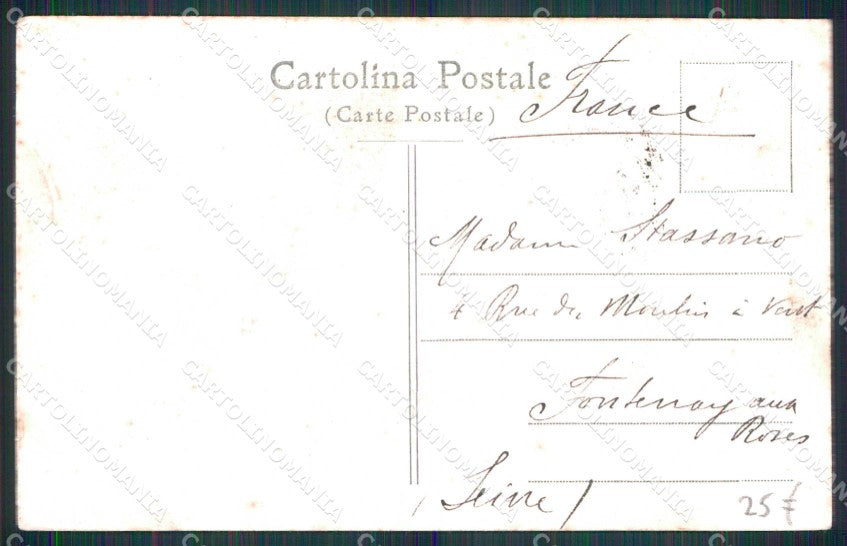 Cartolina Postale
(Carte Postale)
France
Madame Stassano
4 Rue du Moulin à Vent
Fontenay aux
Roses
(Seine)
25 €
CARTOLINOMANIA